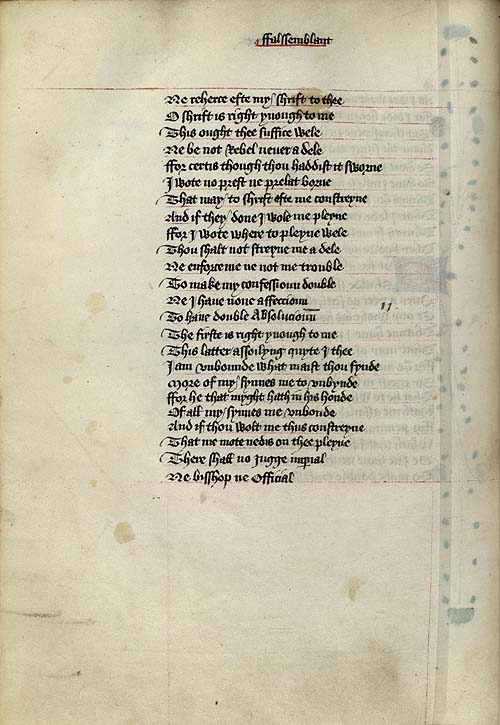 ffalssemblant
Ne reherce efte my shrift to thee
O shrift is right ynough to me
This ought thee suffice wele
Ne be not Rebel neuer a dele
ffor certis though thou haddist it sworne
I wote no prest ne prelat borne
That may to shrift efte me constreyne
And if they done I wole me pleyne
ffor I wote where to pleyne wele
Thou shalt not streyne me a dele
Ne enforce me ne not me trouble
To make my confessioun double
Ne I haue none affeccioun
To haue double Absolucioun
The firste is right ynough to me
This latter assoilyng quyte I thee
I am vnbounde what maist thou fynde
More of my synnes me to vnbynde
ffor he that myght hath in his honde
Of all my synnes me vnbonde
And if thou wolt me thus constreyne
That me mote nedis on thee pleyne
There shall no Jugge imperial
Ne bisshop ne Official